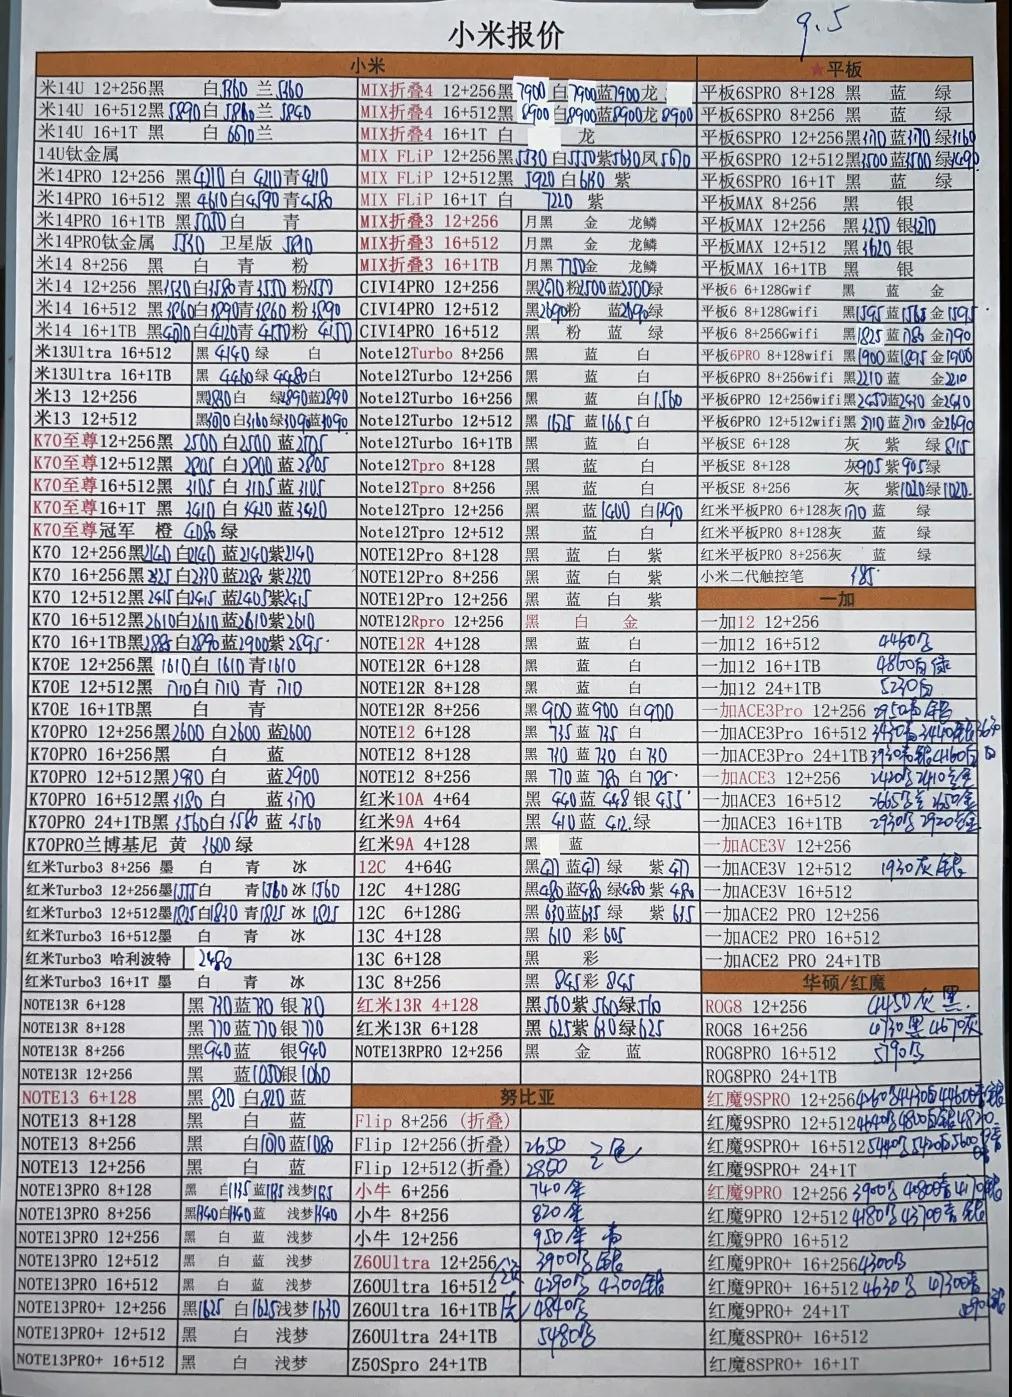 9.5
小米报价
小米
米14U 12+256黑 白5360 兰5360
米14U 16+512黑5890白5860 兰5840
米14U 16+1T 黑 白6670兰
14U钛金属
米14PRO 12+256 黑4210白 4210青4210
米14PRO 16+512 黑4610白4590青4580
米14PRO 16+1TB黑5050白 青
米14PRO钛金属 5530 卫星版 5810
米14 8+256 黑 白 青 粉
米14 12+256 黑3530白3580青3550粉3550
米14 16+512 黑3860白3890青3860粉3890
米14 16+1TB 黑4070白4120青4150粉4150
米13Ultra 16+512 黑 4140 绿 白
米13Ultra 16+1TB 黑 4460绿4480白
米13 12+256 黑2830白 绿2890蓝2890
米13 12+512 黑3070白3160绿3090蓝3090
K70至尊12+256黑 2500白2500 蓝2505
K70至尊12+512黑 2805 白2800蓝2805
K70至尊16+512黑 3105 白3105蓝3105
K70至尊16+1T 黑 3410 白3420 蓝3420
K70至尊冠军 橙 4080 绿
K70 12+256黑2140白2140 蓝2140紫2140
K70 16+256黑2325白2330蓝2280紫2320
K70 12+512黑2415白2415蓝2405紫2415
K70 16+512黑2610白2610蓝2610紫2610
K70 16+1TB黑2885白2890蓝2900紫2895
K70E 12+256黑 1610白1610青1610
K70E 12+512黑 1710白1710 青 1710
K70E 16+1TB黑 白 青
K70PRO 12+256黑2600白2600 蓝2600
K70PRO 16+256黑 白 蓝
K70PRO 12+512黑2930白 蓝2900
K70PRO 16+512黑3180白 蓝3170
K70PRO 24+1TB黑3560白3580 蓝3560
K70PRO兰博基尼 黄 3600绿
红米Turbo3 8+256 墨 白 青 冰
红米Turbo3 12+256墨1555白 青1560冰1560
红米Turbo3 12+512墨1825白1830 青1825 冰1825
红米Turbo3 16+512墨 白 青 冰
红米Turbo3 哈利波特 2480
红米Turbo3 16+1T 墨 白 青 冰
NOTE13R 6+128 黑 730蓝730 银730
NOTE13R 8+128 黑 770蓝770银770
NOTE13R 8+256 黑940蓝 银940
NOTE13R 12+256 黑 蓝1050银1060
NOTE13 6+128 黑 820 白820蓝
NOTE13 8+128 黑 白 蓝
NOTE13 8+256 黑 白1070蓝1080
NOTE13 12+256 黑 白 蓝
NOTE13PRO 8+128 黑 白1135蓝1135浅梦1135
NOTE13PRO 8+256 黑1340白1340蓝 浅梦1340
NOTE13PRO 12+256 黑 白 蓝 浅梦
NOTE13PRO 12+512 黑 白 蓝 浅梦
NOTE13PRO 16+512 黑 白 蓝 浅梦
NOTE13PRO+ 12+256 黑1625 白1625浅梦1630
NOTE13PRO+ 12+512 黑 白 浅梦
NOTE13PRO+ 16+512 黑 白 浅梦
MIX折叠4 12+256黑7900白7900蓝7900龙
MIX折叠4 16+512黑8900白8900蓝8900龙8900
MIX折叠4 16+1T 白 龙
MIX FLiP 12+256黑5530白5550紫5630凤5670
MIX FLiP 12+512黑 5920白6130 紫
MIX FLiP 16+1T 白 7220 紫
MIX折叠3 12+256 月黑 金 龙鳞
MIX折叠3 16+512 月黑 金 龙鳞
MIX折叠3 16+1TB 月黑 7750金 龙鳞
CIVI4PRO 12+256 黑2470粉2500蓝2500绿
CIVI4PRO 12+512 黑2690粉 蓝2690绿
CIVI4PRO 16+512 黑 粉 蓝 绿
Note12Turbo 8+256 黑 蓝 白
Note12Turbo 12+256 黑 蓝 白
Note12Turbo 16+256 黑 蓝 白1560
Note12Turbo 12+512 黑 1675 蓝1665白
Note12Turbo 16+1TB 黑 蓝 白
Note12Tpro 8+128 黑 蓝 白
Note12Tpro 8+256 黑 蓝 白
Note12Tpro 12+256 黑 蓝1400 白1490
Note12Tpro 12+512 黑 蓝 白
NOTE12Pro 8+128 黑 蓝 白 紫
NOTE12Pro 8+256 黑 蓝 白 紫
NOTE12Pro 12+256 黑 蓝 白 紫
NOTE12Rpro 12+256 黑 白 金
NOTE12R 4+128 黑 蓝 白
NOTE12R 6+128 黑 蓝 白
NOTE12R 8+128 黑 蓝 白
NOTE12R 8+256 黑900蓝900 白900
NOTE12 6+128 黑 735蓝 735 白
NOTE12 8+128 黑 730 蓝 730 白730
NOTE12 8+256 黑 770 蓝 780 白785
红米10A 4+64 黑 440蓝 448 银455
红米9A 4+64 黑 410 蓝 412.绿
红米9A 4+128 黑 蓝
12C 4+64G 黑471蓝471 绿 紫471
12C 4+128G 黑480蓝480绿480紫480
12C 6+128G 黑630蓝635 绿 紫635
13C 4+128 黑 610 彩 605
13C 6+128 黑 彩
13C 8+256 黑 845彩 845
红米13R 4+128 黑560紫560绿560
红米13R 6+128 黑 625紫630绿625
NOTE13RPRO 12+256 黑 金 蓝
努比亚
Flip 8+256 (折叠)
Flip 12+256(折叠) 2650 三色
Flip 12+512(折叠) 2850
小牛 6+256 740
小牛 8+256 820
小牛 12+256 950
Z60Ultra 12+256 3900黑银
Z60Ultra 16+512 4290黑 4300银
Z60Ultra 16+1TB 4840黑
Z60Ultra 24+1TB 5480黑
Z50Spro 24+1TB
★平板
平板6SPRO 8+128 黑 蓝 绿
平板6SPRO 8+256 黑 蓝 绿
平板6SPRO 12+256黑3170蓝3170绿3160
平板6SPRO 12+512黑3500蓝3500绿3490
平板6SPRO 16+1T 黑 蓝 绿
平板MAX 8+256 黑 银
平板MAX 12+256 黑3250 银3270
平板MAX 12+512 黑3620银
平板MAX 16+1TB 黑 银
平板6 6+128Gwif 黑 蓝 金
平板6 8+128Gwifi 黑1595蓝1565金1595
平板6 8+256Gwifi 黑1825蓝1780金1790
平板6PRO 8+128wifi 黑1900蓝1895金1900
平板6PRO 8+256wifi 黑2210蓝 金2210
平板6PRO 12+256wifi黑2450蓝2430金2410
平板6PRO 12+512wifi黑2710蓝2710金2690
平板SE 6+128 灰 紫 绿815
平板SE 8+128 灰905紫905绿
平板SE 8+256 灰 紫1020绿1020
红米平板PRO 6+128灰1170 蓝 绿
红米平板PRO 8+128灰 蓝 绿
红米平板PRO 8+256灰 蓝 绿
小米二代触控笔 385
一加
一加12 12+256
一加12 16+512 4460黑
一加12 16+1TB 4860白绿
一加12 24+1TB 5230白
一加ACE3Pro 12+256 2950青银
一加ACE3Pro 16+512 3430青3440银3630白
一加ACE3Pro 24+1TB3930青银4160白
一加ACE3 12+256 2420黑2410金
一加ACE3 16+512 2665黑2650金
一加ACE3 16+1TB 2930黑 2920金
一加ACE3V 12+256
一加ACE3V 12+512 1930灰 银
一加ACE3V 16+512
一加ACE2 PRO 12+256
一加ACE2 PRO 16+512
一加ACE2 PRO 24+1TB
华硕/红魔
ROG8 12+256 4450灰 黑
ROG8 16+256 4730黑 4670灰
ROG8PRO 16+512 5790黑
ROG8PRO 24+1TB
红魔9SPRO 12+256
红魔9SPRO 12+512
红魔9SPRO+ 16+512
红魔9SPRO+ 24+1T
红魔9PRO 12+256 3900黑 4080青 4170银
红魔9PRO 12+512 4180黑 4370青 银
红魔9PRO 16+512
红魔9PRO+ 16+256 4300黑
红魔9PRO+ 16+512 4630黑
红魔9PRO+ 24+1T
红魔8SPRO+ 16+512
红魔8SPRO+ 16+1T